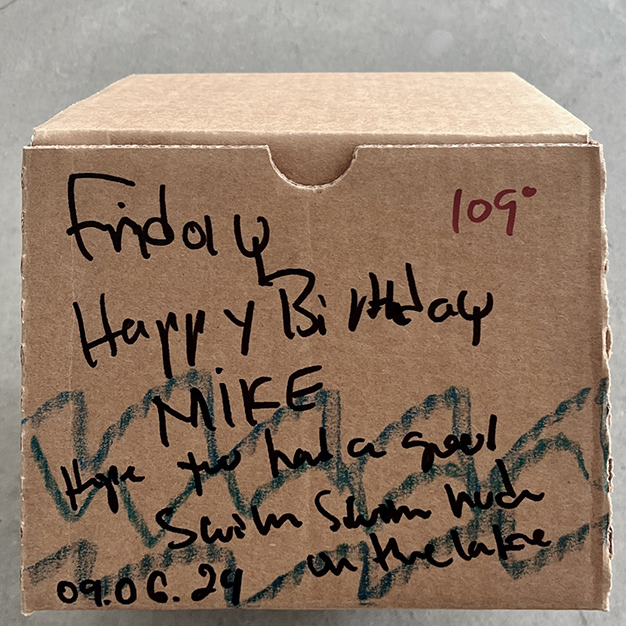 Friday
109°
Happy Birthday
MIKE
Hope you had a good
Swim Swim
on the lake
09.06.24